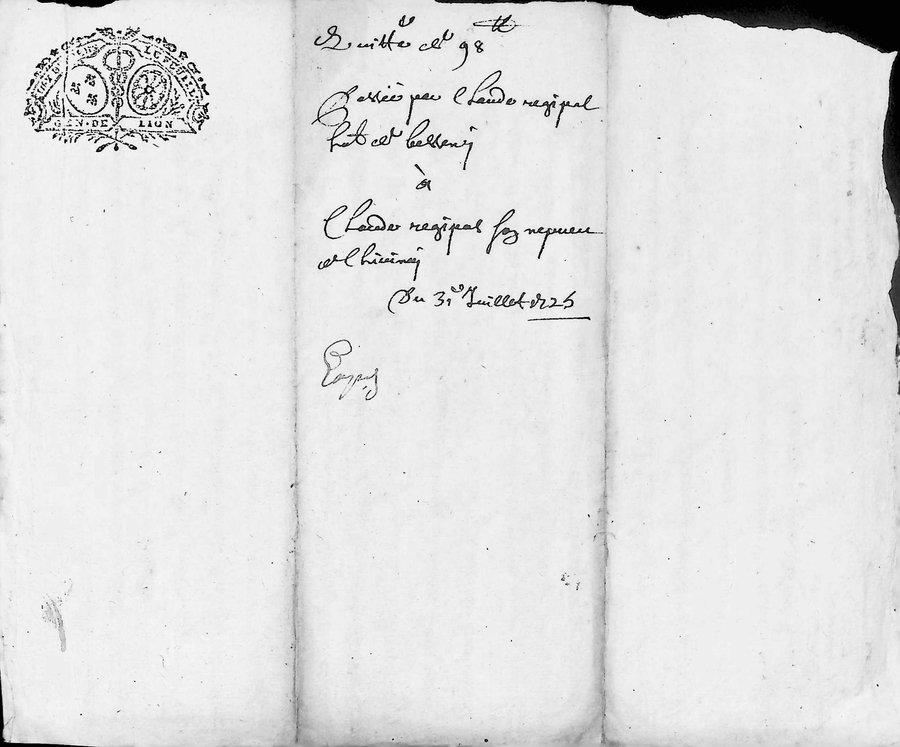 GEN·DE LION
Quitte de 98 ₶
Passée par Claude regipal
hat de bessenj
à
Claude regipal son nepveu
de
Du 31e Juillet 1725